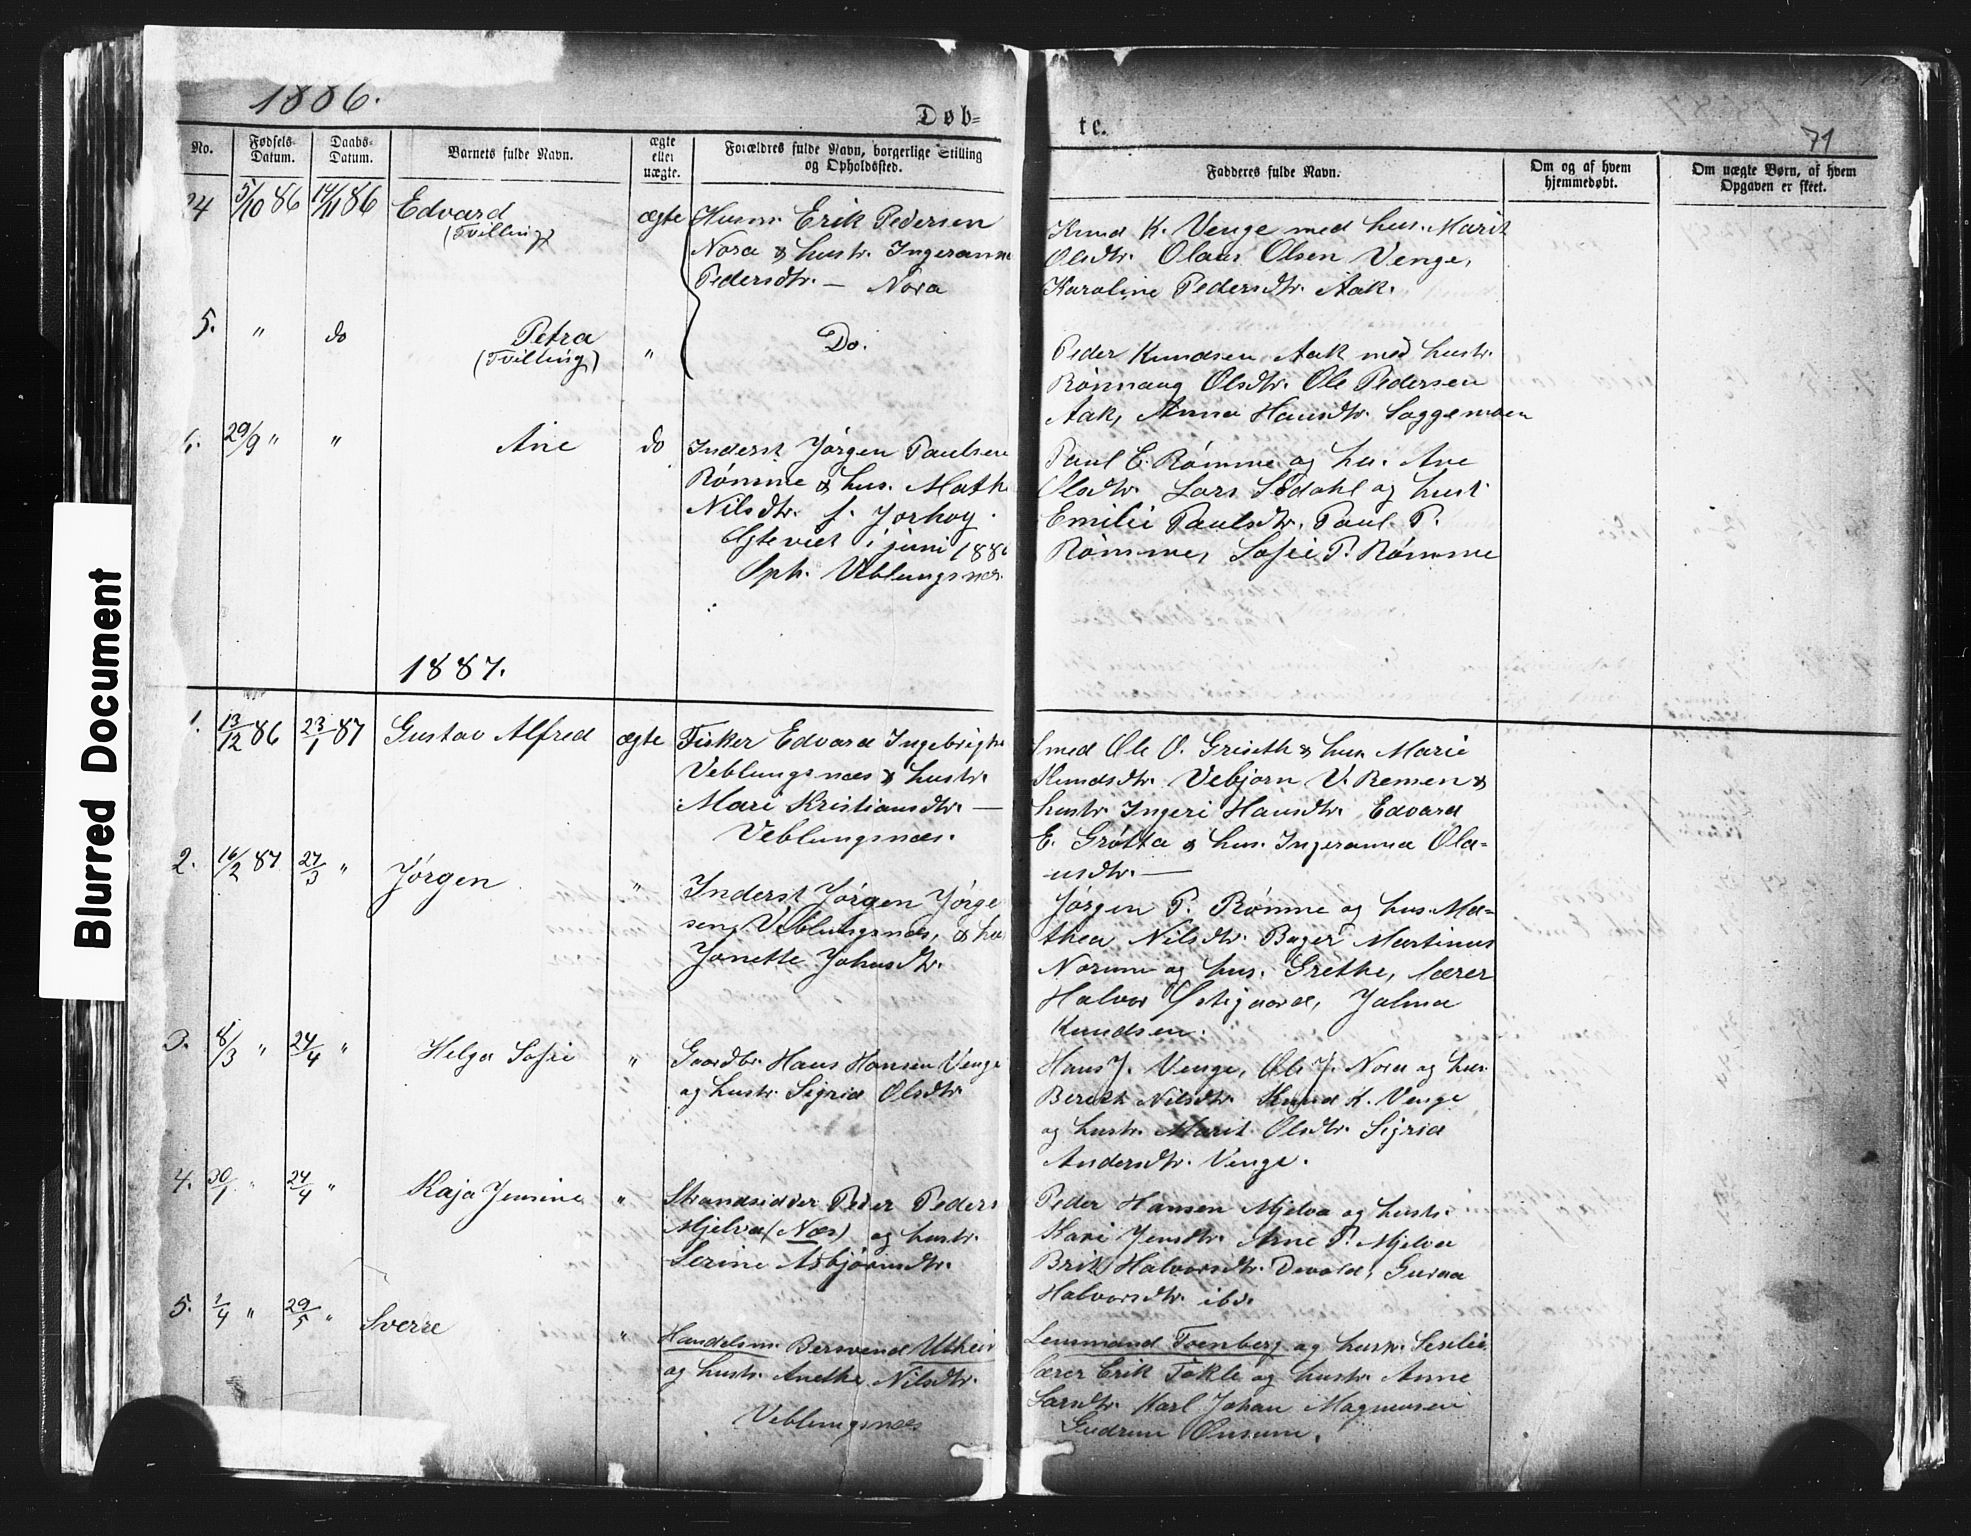 1886.
Døb=
te.
71
No.
Fødsels-
Datum.
Daabs-
Datum.
Barnets fulde Navn.
ægte
eller
uægte.
Forældres fulde Navn, borgerlige Stilling
og Opholdssted.
Fadderes fulde Navn.
Om og af hvem
hjemmedøbt.
Om uægte Børn, af hvem
Opgaven er skeet.
24 5/10 86 14/11 86 Edvard
(Tvilling)
ægte
Husm. Erik Pedersen
Nora & hustr. Ingeranna
Pedersdtr. — Nora
Knud K. Venge med hus. Marit
Olsdtr. Olaus Olsen Venge,
Karoline Pedersdtr. Aak.
5. " do Petra
(Tvilling) "
Do.
Peder Knudsen Aak med hustr.
Rønnaug Olsdtr. Ole Pedersen
Aak, Anna Hansdtr. Soggemoen
29/9 " " Ane do
Inderst Jørgen Paulsen
Rømme & hus. Math
Nilsdtr. f. Jorhoy.
Ægteviet i juni 188
Oph. Veblungsnæs.
Paul E. Rømme og hu. Ane
Olsdtr. Lars Sødahl og hust.
Emilie Paulsdtr. Paul P.
Rømme, Sofie P. Rømme
1887.
1. 13/12 86 23/1 87 Gustav Alfred ægte
Fisker Edvard Ingebrigts
Veblungsnæs & hustr.
Mari Kristiansdtr. —
Veblungsnæs.
Smed Ole O. Griseth & hus. Marie
Knudsdtr. Vebjørn V. Remen &
hustr. Ingeri Hansdtr. Edvard
E. Grøtta & hus. Ingeranna Ola-
usdtr. —
2. 16/2 87 27/3 " Jørgen "
Inderst Jørgen Jørge
sen, Veblungsnæs, & hu
Jonette Johnsdtr.
Jørgen P. Rømme og hus. Ma=
thea Nilsdtr. Bager Martinus
Norum og hus. Grethe, lærer
Halvor Østigaard, Jalma
Knudsen.
3. 8/3 " 24/4 " Helga Sofie "
Gaardbr. Hans Hansen Venge
og hustr. Sigrid Olsdtr.
Hans J. Venge, Ole J. Nora og hus.
Bereth Nilsdtr. Knud K. Venge
og hustr. Marit Olsdtr. Sigrid
Andersdtr. Venge.
4. 30/1 " 24/4 " Kaja Jensine "
Strandsidder Peder Peders
Mjelva (Næs) og hustr.
Serine Asbjørnsdtr.
Peder Hansen Mjelva og hustr.
Kari Jensdtr. Arne P. Mjelva
Brit Halvorsdtr. Devold, Guroa
Halvorsdtr. ibd.
5. 1/4 " 29/5 " Sverre "
Handelsm. Bersvend Utheim
og hustr. Anethe Nilsdtr.
Veblungsnæs
Lensmand Tvenberg og hustr. Seselie,
lærer Erik Tokle og hustr. Anne
Larsdtr. Karl Johan Magnussen
Gudrun Onsum.
Blurred Document